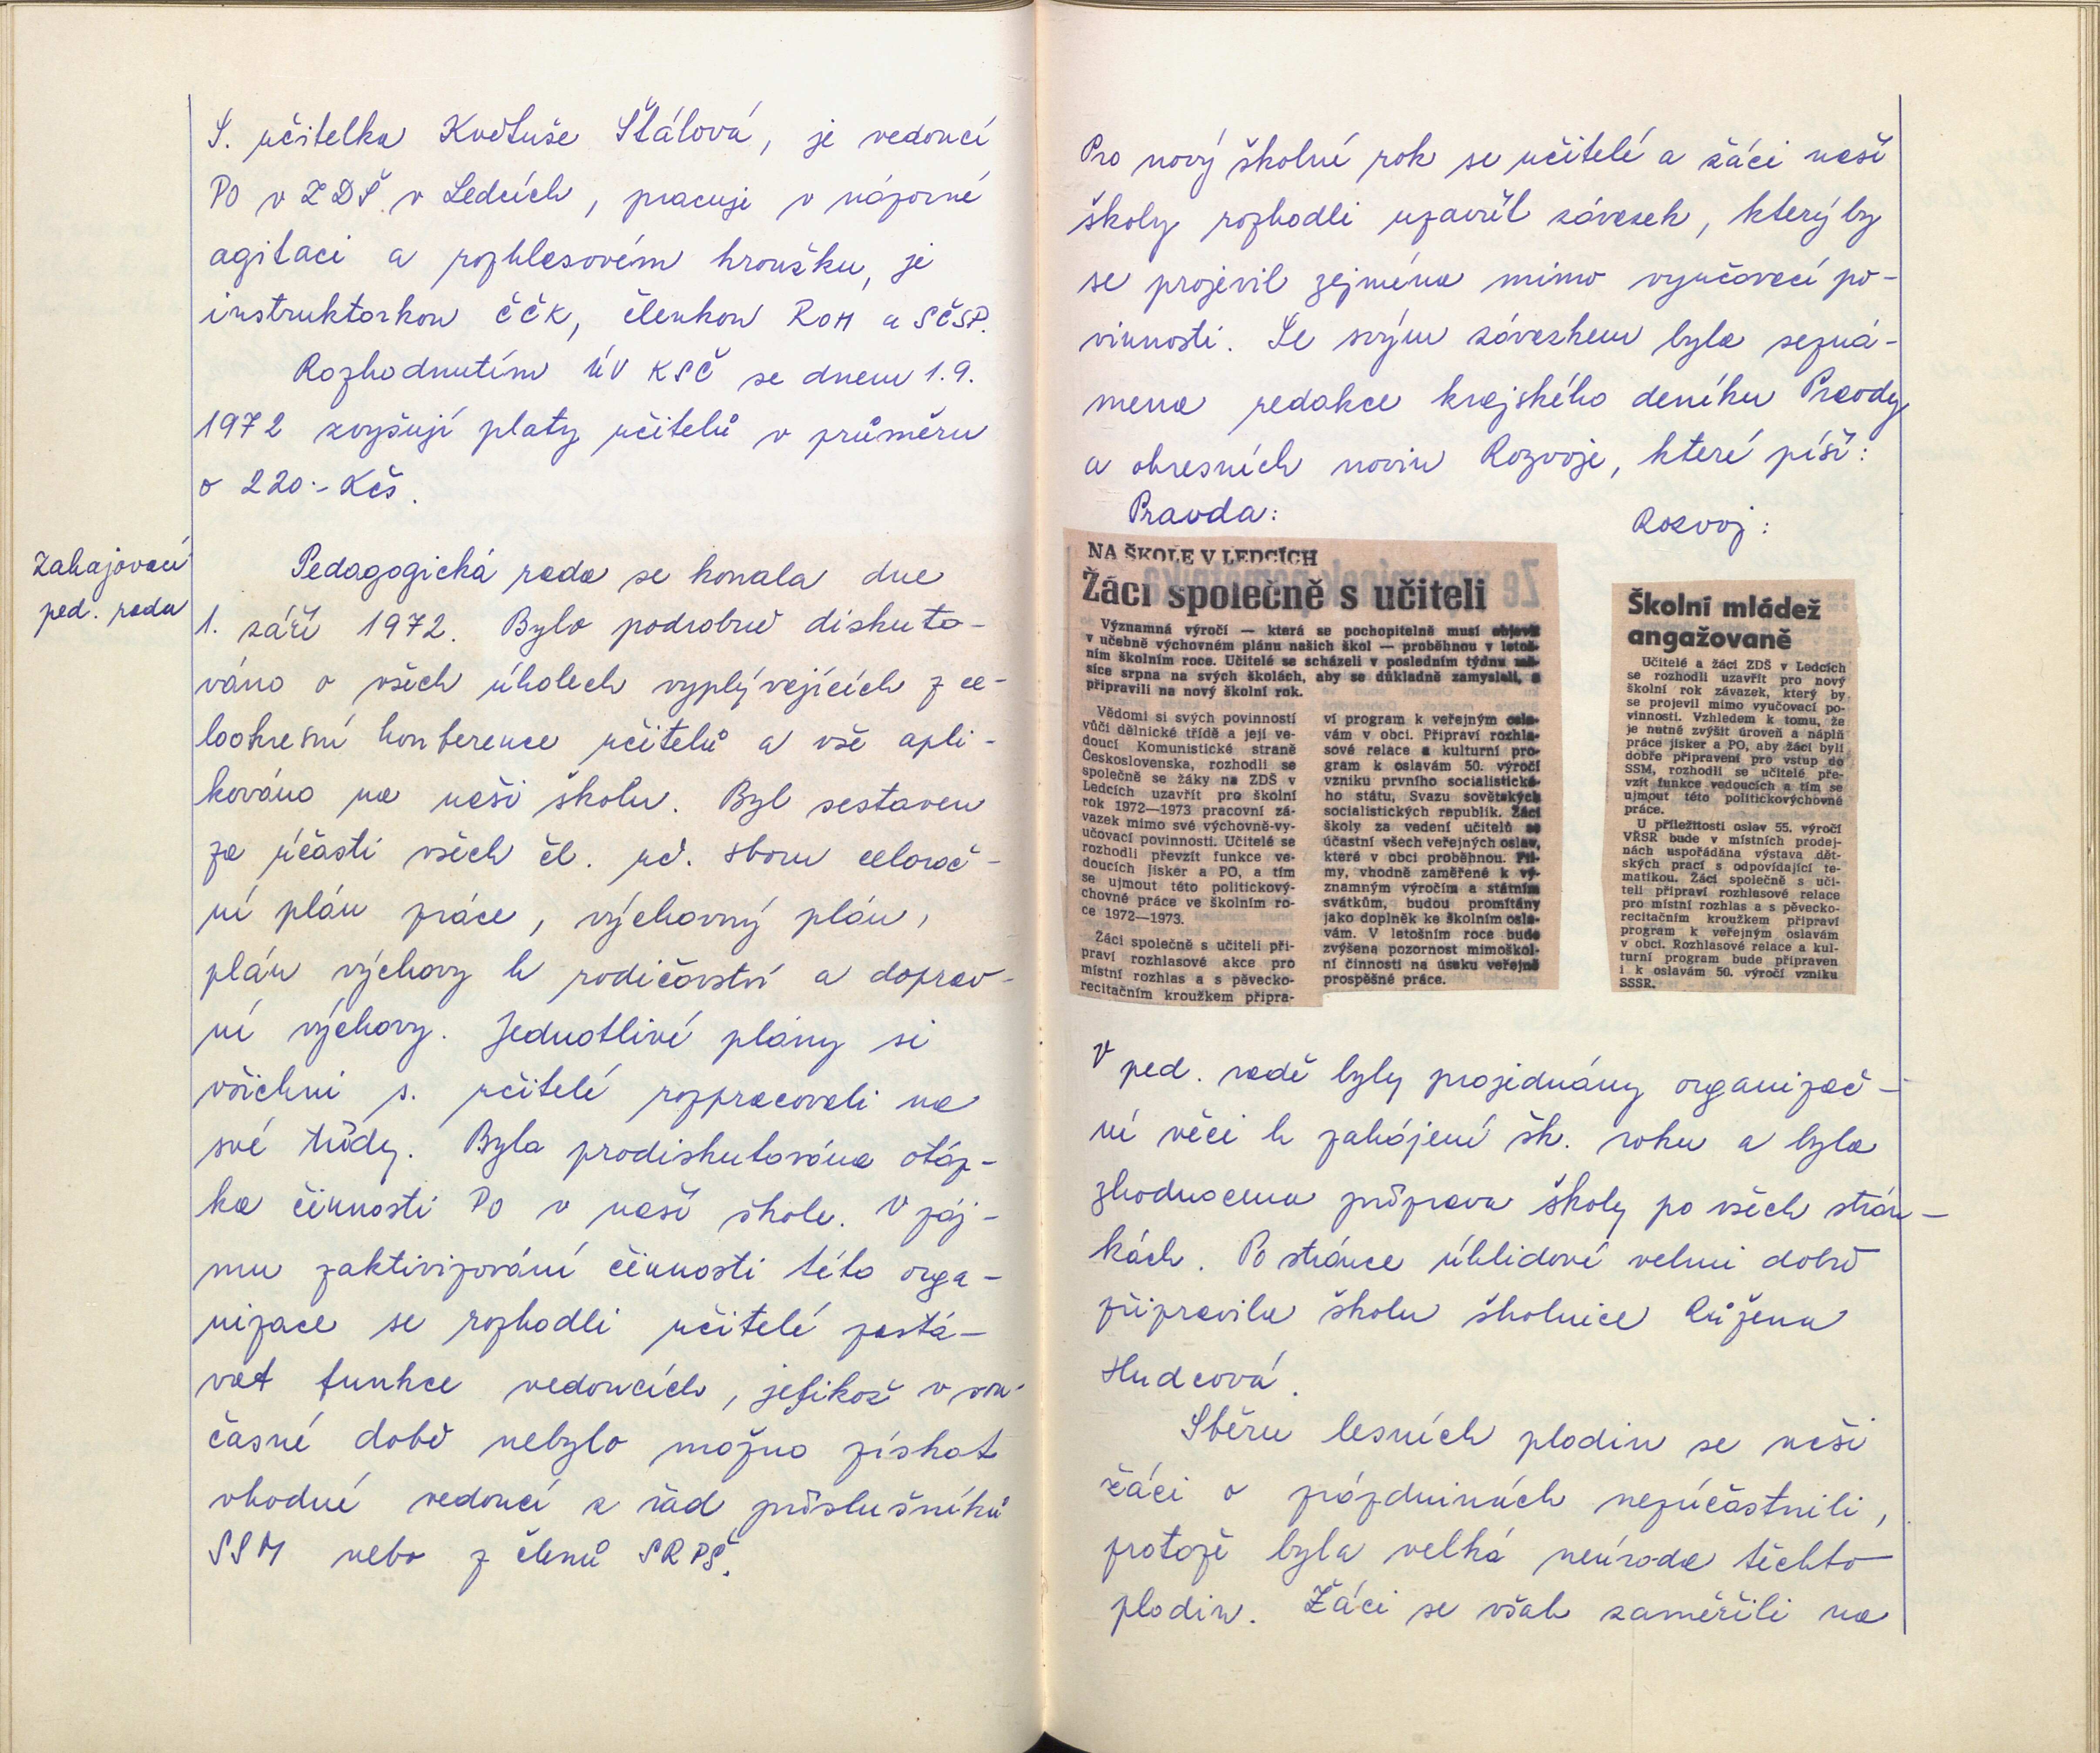 S. učitelka Květuše Štálová, je vedoucí
PO v ZDŠ v Ledcích, pracuje v názorné
agitaci a rozhlasovém kroužku, je
instruktorkou ČČK, členkou ROH a SČSP.
Rozhodnutím ÚV KSČ se dnem 1.9.
1972 zvyšují platy učitelů v průměru
o 220.- Kčs.
Zahajovací
ped. rada
Pedagogická rada se konala dne
1. září 1972. Bylo podrobně diskuto-
váno o všech úkolech vyplývajících z ce-
lookresní konference učitelů a vše apli-
kováno na naši školu. Byl sestaven
za účasti všech čl. uč. sboru celoroč-
ní plán práce, výchovný plán,
plán výchovy k rodičovství a doprav-
ní výchovy. Jednotlivé plány si
všichni s. učitelé rozpracovali na
své třídy. Byla prodiskutována otáz-
ka činnosti PO v naší škole. V záj-
mu zaktivizování činnosti této orga-
nizace se rozhodli učitelé zastá-
vat funkce vedoucích, jelikož v sou-
časné době nebylo možno získat
vhodné vedoucí z řad příslušníků
SSM nebo z členů SRPŠ.
Pro nový školní rok se učitelé a žáci naší
školy rozhodli uzavřít závazek, který by
se projevil zejména mimo vyučovací po-
vinnosti. Se svým závazkem byla sezná-
mena redakce krajského deníku Pravdy
a okresních novin Rozvoje, které píší:
Pravda:
NA ŠKOLE V LEDCÍCH
Žáci společně s učiteli
Významná výročí — která se pochopitelně musí objevit
v učebně výchovném plánu našich škol — proběhnou v letoš-
ním školním roce. Učitelé se scházeli v posledním týdnu mě-
síce srpna na svých školách, aby se důkladně zamysleli, a
připravili na nový školní rok.
Vědomi si svých povinností
vůči dělnické třídě a její ve-
doucí Komunistické straně
Československa, rozhodli se
společně se žáky na ZDŠ v
Ledcích uzavřít pro školní
rok 1972—1973 pracovní zá-
vazek mimo své výchovně-vy-
učovací povinnosti. Učitelé se
rozhodli převzít funkce ve-
doucích Jisker a PO, a tím
se ujmout této politickový-
chovné práce ve školním ro-
ce 1972—1973.
Žáci společně s učiteli při-
praví rozhlasové akce pro
místní rozhlas a s pěvecko-
recitačním kroužkem připra-
ví program k veřejným osla-
vám v obci. Připraví rozhla-
sové relace a kulturní pro-
gram k oslavám 50. výročí
vzniku prvního socialistické-
ho státu, Svazu sovětských
socialistických republik. Žáci
školy za vedení učitelů se
účastní všech veřejných oslav,
které v obci proběhnou. Fil-
my, vhodně zaměřené k vý-
znamným výročím a státním
svátkům, budou promítány
jako doplněk ke školním osla-
vám. V letošním roce bude
zvýšena pozornost mimoškol-
ní činnosti na úseku veřejně
prospěšné práce.
Rozvoj:
Školní mládež
angažovaně
Učitelé a žáci ZDŠ v Ledcích
se rozhodli uzavřít pro nový
školní rok závazek, který by
se projevil mimo vyučovací po-
vinnosti. Vzhledem k tomu, že
je nutné zvýšit úroveň a náplň
práce jisker a PO, aby žáci byli
dobře připraveni pro vstup do
SSM, rozhodli se učitelé pře-
vzít funkce vedoucích a tím se
ujmout této politickovýchovné
práce.
U příležitosti oslav 55. výročí
VŘSR bude v místních prodej-
nách uspořádána výstava dět-
ských prací s odpovídající te-
matikou. Žáci společně s uči-
teli připraví rozhlasové relace
pro místní rozhlas a s pěvecko-
recitačním kroužkem připraví
program k veřejným oslavám
v obci. Rozhlasové relace a kul-
turní program bude připraven
i k oslavám 50. výročí vzniku
SSSR.
V ped. radě byly projednány organizač-
ní věci k zahájení šk. roku a byla
zhodnocena příprava školy po všech strán-
kách. Po stránce úklidové velmi dobře
připravila školu školnice Růžena
Hudcová.
Sběru lesních plodin se naši
žáci o prázdninách nezúčastnili,
protože byla velká neúroda těchto
plodin. Žáci se však zaměřili na